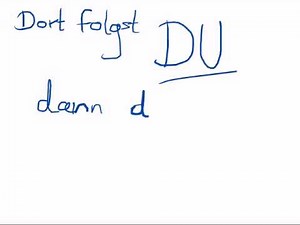 Dort folgst DU
dann d